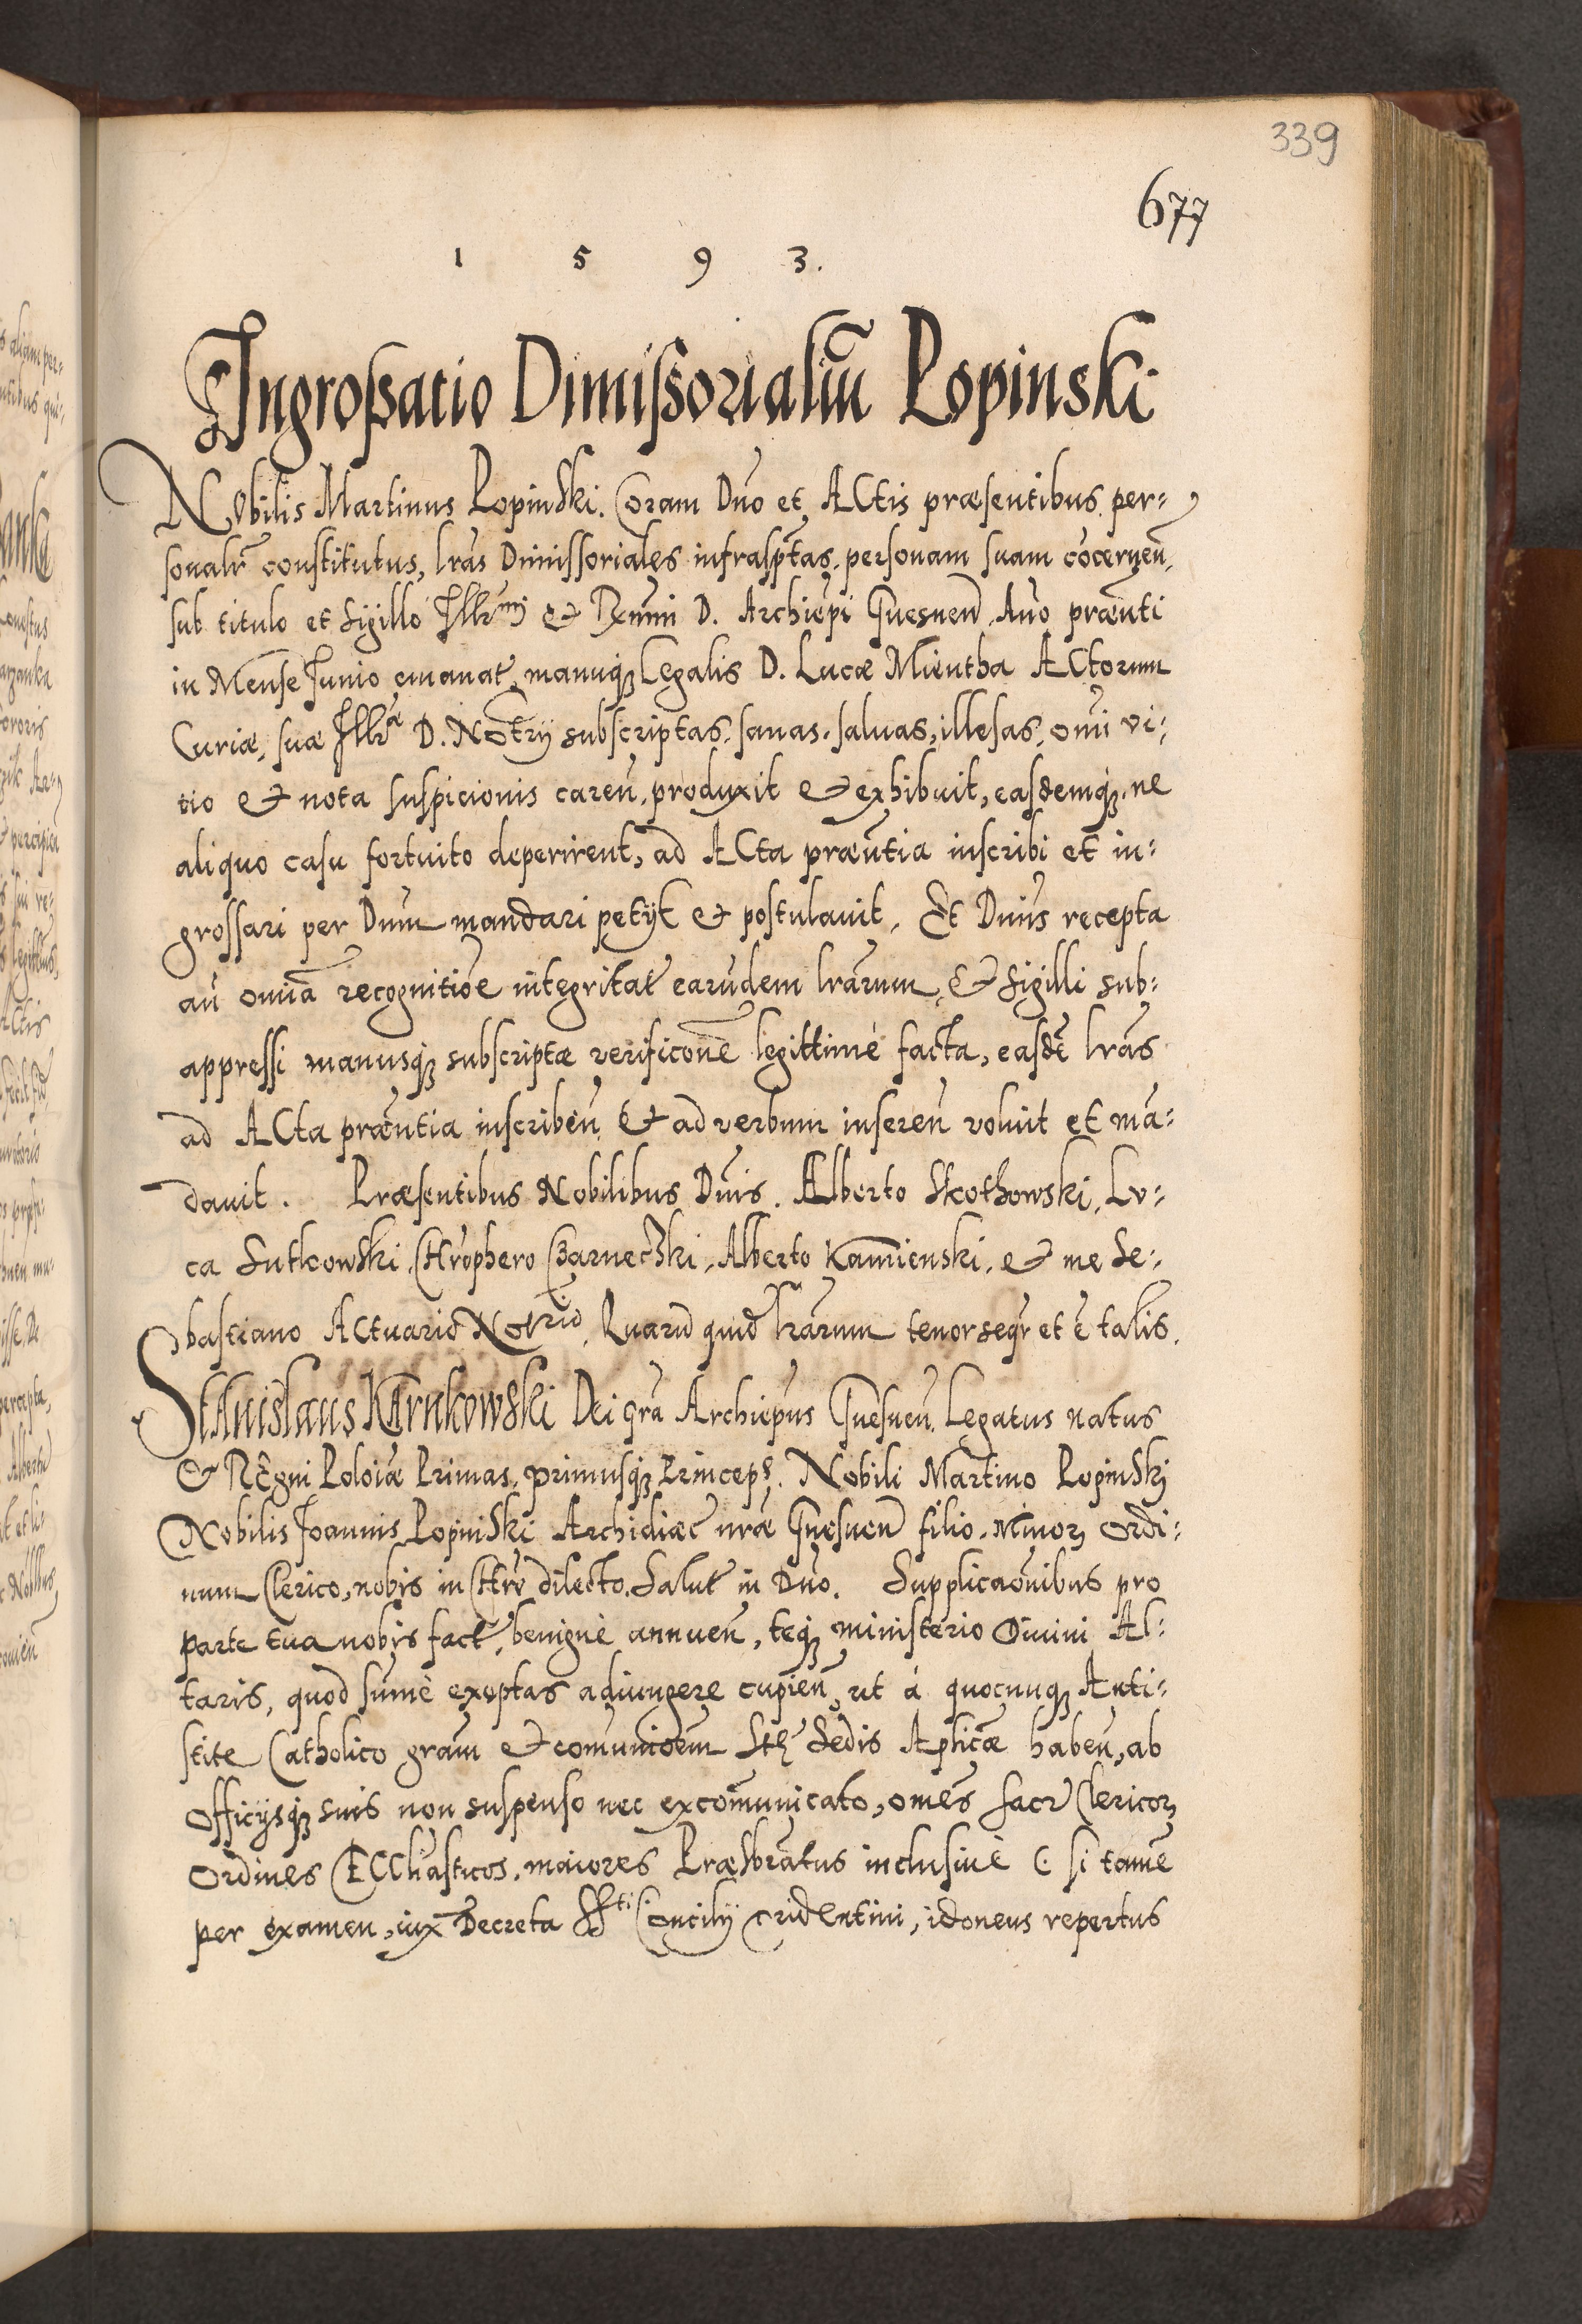 339
677
1 5 9 3.
Ingrossatio Dimissorialiū Popinski
NObilis Martinus PopinSki. Coram Dno et ACtis præsentibus per-
sonalr constitutus, lras Dimissoriales infrasptas, personam suam cōcerneñ,
sub titulo et Sigillo Illrmi & Rxmi D. Archiepi Gnesneñ Año præñti
in Mense Junio emanat, manuq₃ Legalis D. Lucæ Mientha ACtorum
Curiæ, suæ Illræ D. Notrij subscriptas, sanas, saluas, illesas, omi vi-
tio & nota suspicionis careñ, produxit & exhibuit, easdemq₃, ne
aliquo casu fortuito deperirent, ad ACta præñtia inscribi et in-
grossari per Dnm mandari petijt & postulauit. Et Dnus recepta
añ omia recognitiōe integritat earūdem lrarum, & Sigilli sub-
appressi manusq₃ subscriptæ verificoñe legittimè facta, easdē lras
ad ACta præñtia inscribeñ & ad verbum insereñ voluit et mā-
dauit. Præsentibus Nobilibus Dnis. Alberto Skothowski, Lu-
ca Sutkowski, Chrophero CzarnecZki, Alberto Kamienski, & me Se-
bastiano ACtuario Notrio. Quarū quid lrarum tenor seqr et ē talis.
StAnislaus KArnkowSki Dei gra Archiepus Gnesneñ Legatus natus
& REgni Poloiæ Primas, primusq₃ Princeps. Nobili Martino PopinSki
Nobilis Joannis PopiniSki Archidiæc nræ Gnesneñ filio, Minorꝝ ordi-
num Clerico, nobis in Chro dilecto. Salut in Dño. Supplicaoñibus pro
parte tua nobis fact, benignè annueñ, teq₃ ministerio Diuini Al-
taris, quod sumè exoptas adiungere cupieñ, ut à quocunq₃ Anti-
stite Catholico gram & comunioem Stę Sedis Aplicæ habeñ, ab
officijsq₃ suis non suspenso nec excomunicato, omes sacr Clericorꝝ
Ordines ECClīasticos, maiores Præsbratus inclusiuè (: si tamē
per examen, iux Decreta SSti Concilij Tridentini, idoneus repertus